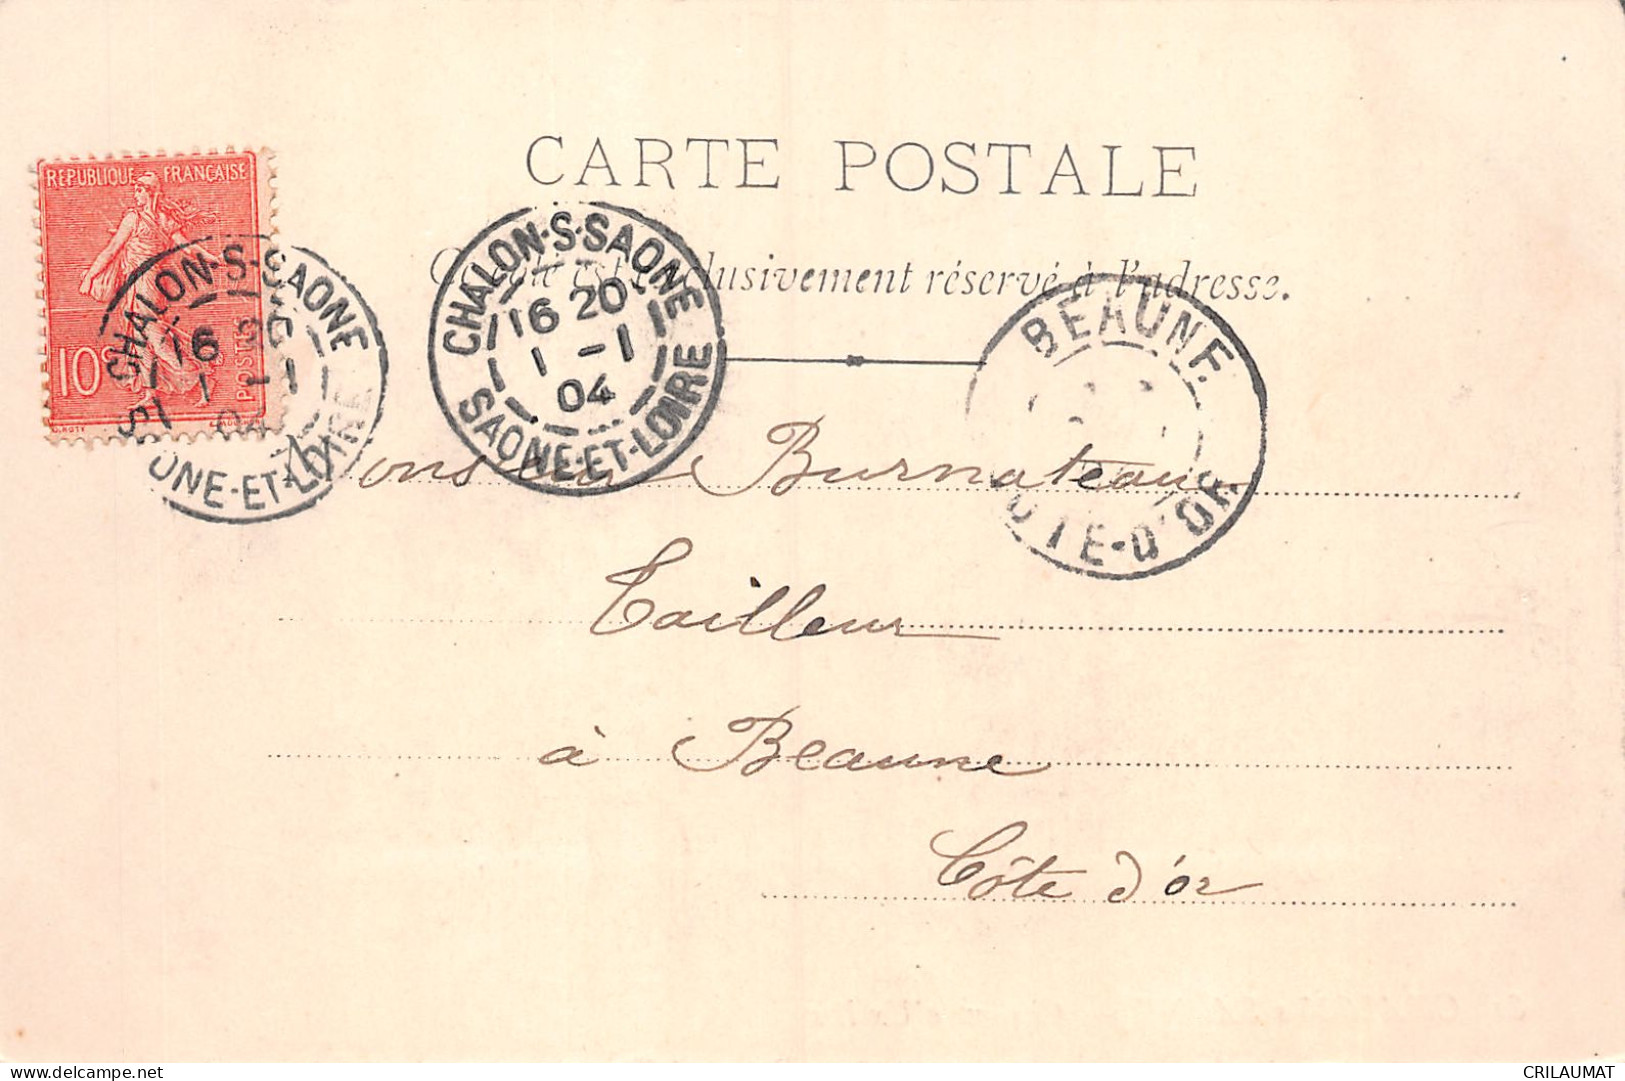 CARTE POSTALE
Ce côté est exclusivement réservé à l'adresse.
REPUBLIQUE FRANÇAISE
10c
POSTES
O. ROTY
CHALON-S-SAONE
16 20
1 -1
04
SAONE-ET-LOIRE
CHALON-S-SAONE
16 20
1 -1
04
SAONE-ET-LOIRE
BEAUNE
COTE-D'OR
Monsieur Burnateau
Tailleur
à Beaune
Côte d'or
delcampe.net
CRILAUMAT